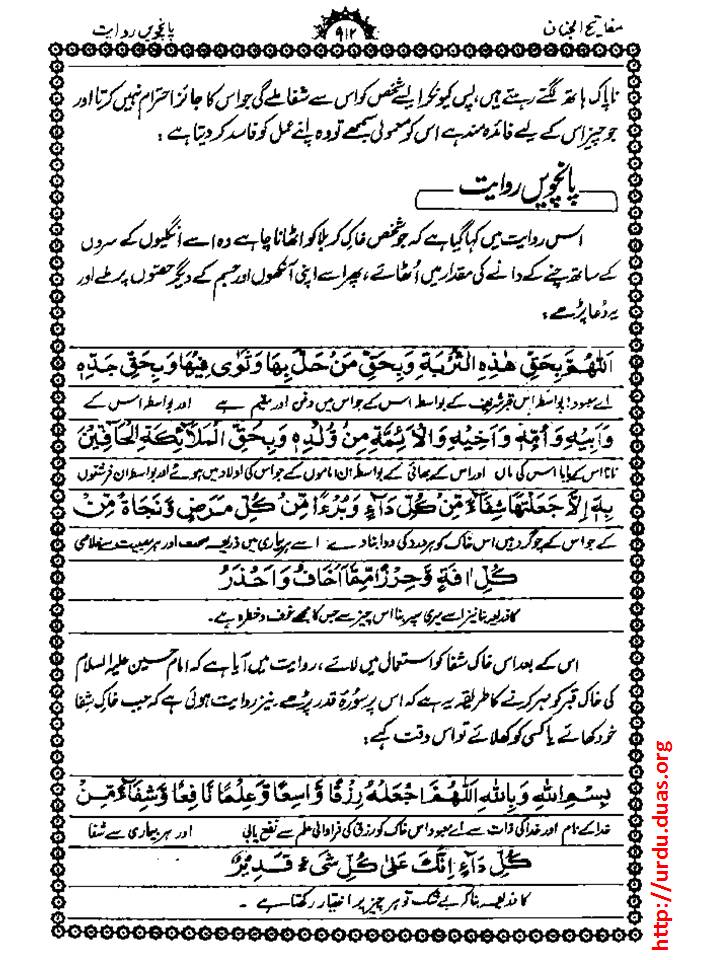 مفاتیح الجنان
۹۱۲
پانچویں روایت
ناپاک ہاتھ لگتے رہتے ہیں، پس کیونکر ایسے شخص کو اس سے شفا ملے گی جو اس کا جائز احترام نہیں کرتا اور
جو چیز اس کے لیے فائدہ مند ہے اس کو معمولی سمجھے تو وہ اپنے عمل کو فاسد کر دیتا ہے:
پانچویں روایت
اس روایت میں کہا گیا ہے کہ جو شخص خاکِ کربلا کو اٹھانا چاہے وہ اسے انگلیوں کے سروں
کے ساتھ چنے کے دانے کی مقدار میں اُٹھائے، پھر اسے اپنی آنکھوں اور جسم کے دیگر حصّوں پر ملے اور
یہ دُعا پڑھے:
اَللّٰهُمَّ بِحَقِّ هٰذِهِ التُّرْبَةِ وَبِحَقِّ مَنْ حَلَّ بِهَا وَثَوٰى فِيْهَا وَبِحَقِّ جَدِّهٖ
اے معبود! بواسطہ اس قبر شریف کے بواسطہ اس کے جو اس میں دفن اور مقیم ہے اور بواسطہ اس کے
وَاَبِيْهِ وَاُمِّهٖ وَاَخِيْهِ وَالْاَئِمَّةِ مِنْ وُلْدِهٖ وَبِحَقِّ الْمَلَآئِكَةِ الْحَآفِّيْنَ
نانا اس کے بابا اس کی ماں اور اس کے بھائی کے بواسطہ ان اماموں کے جو اس کی اولاد میں ہوئے اور بواسطہ ان فرشتوں
بِهٖ اِلَّا جَعَلْتَهَا شِفَآءً مِّنْ كُلِّ دَآءٍ وَبُرْءًا مِّنْ كُلِّ مَرَضٍ وَّنَجَاةً مِّنْ
کے جو اس کے گرد ہیں اس خاک کو ہر درد کی دوا بنا دے اسے ہر بیماری میں ذریعہ صحت اور ہر مصیبت سے خلاصی
كُلِّ اٰفَةٍ وَّحِرْزًا مِّمَّا اَخَافُ وَاَحْذَرُ
کا ذریعہ بنا نیز اسے میری سپر بنا اس چیز سے جس کا مجھے خوف و خطرہ ہے۔
اس کے بعد اس خاک شفا کو استعمال میں لائے، روایت میں آیا ہے کہ امام حسین علیہ السلام
کی خاک قبر کو مہر کرنے کا طریقہ یہ ہے کہ اس پر سورۂ قدر پڑھے۔ نیز روایت ہوئی ہے کہ جب خاکِ شِفا
خود کھائے یا کسی کو کھلائے تو اس وقت کہے:
بِسْمِ اللهِ وَبِاللهِ اَللّٰهُمَّ اجْعَلْهُ رِزْقًا وَّاسِعًا وَّعِلْمًا نَّافِعًا وَّشِفَآءً مِّنْ
خدا کے نام اور خدا کی ذات سے اے معبود اس خاک کو رزق کی فراوانی علم سے نفع یابی اور ہر بیماری سے شفا
كُلِّ دَآءٍ اِنَّكَ عَلٰى كُلِّ شَىْءٍ قَدِيْرٌ
کا ذریعہ بنا کہ بے شک تو ہر چیز پر اختیار رکھتا ہے۔
http://urdu.duas.org